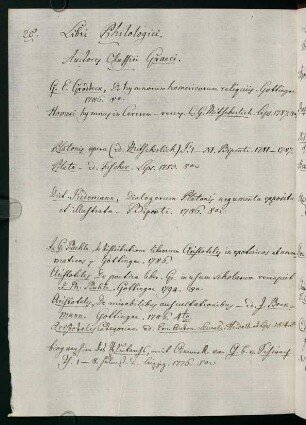 20.
Libri Philologici.
Auctores Classici Graeci.
G. E. Grodeck, De hymnorum homericorum reliquiis. Gottingae
1786. 8o.
Homeri hymnus in Cererem recens. C. G. Mitscherlich Lips. 1787. 8o.
Platonis opera (ed. Mitscherlich) Biponti. 1781-1787.
Plato ed. Fischer. Lips. 1783. 8o.
Tiedemann, Dialogorum Platonis argumenta exposita
et illustrata. Biponti. 1786. 8o.
J. G. Buhle, de distributione librorum Aristotelis in exotericos et acroa
maticos. Göttingen. 1786.
Aristoteles, De poetica liber. Gr. in usum scholarum recognit
Buhle. Göttingen 1794. 8o.
Aristoteles, De mirabilibus auscultationibus ed. J. Beck-
mann. Gottingen. 1786. 4to.
Aristotelis Categoriae. ed.
Biographien des Plutarchs, mit Anmerk. von G. B. v. Schirach
1-8. Leipzig. 1776. 8o.